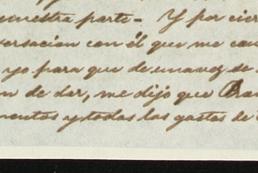 nuestra parte- Y por cier
versacion con él que me cau
yo para que de una vez de
n de dar, me dijo que
mentos y todos los gastos de